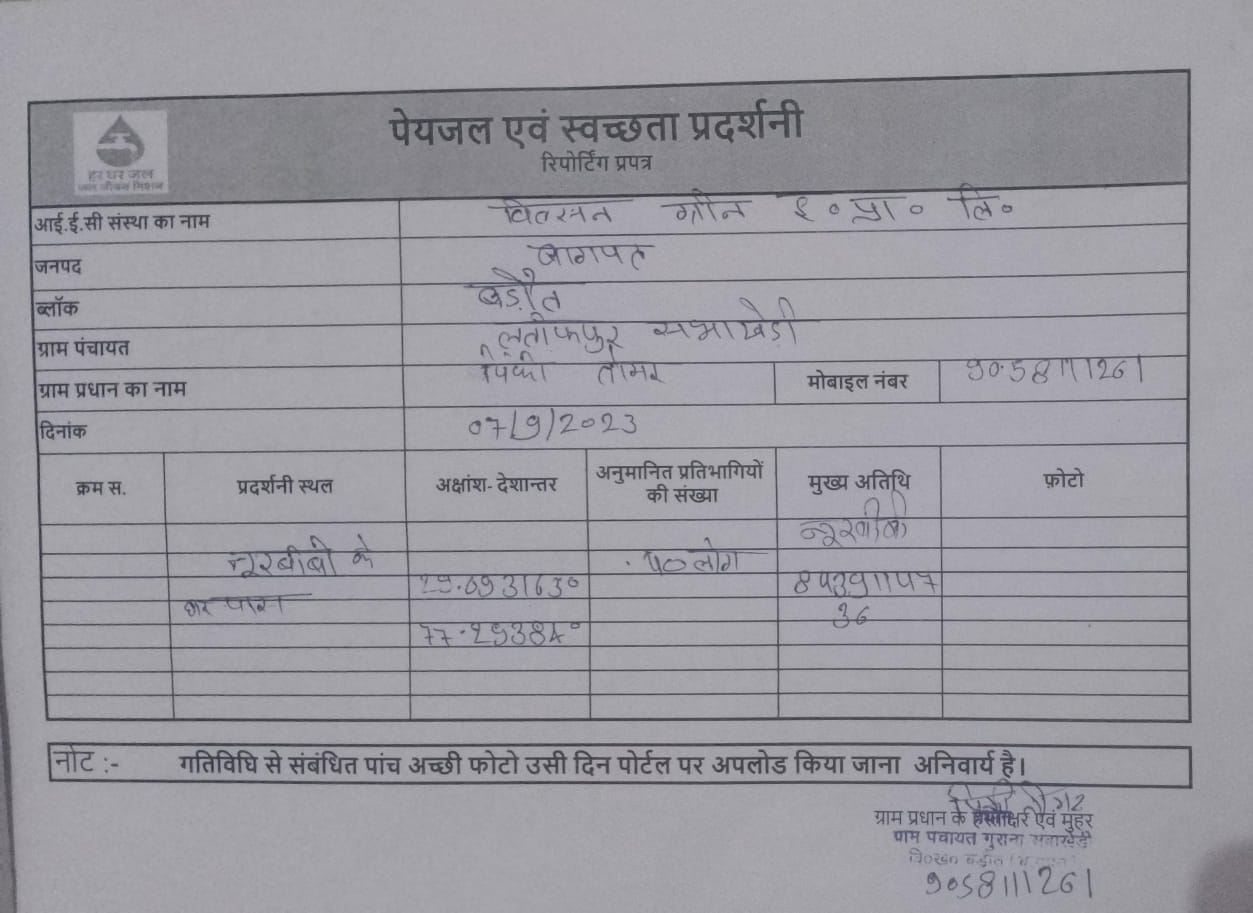 पेयजल एवं स्वच्छता प्रदर्शनी
रिपोर्टिंग प्रपत्र
हर घर जल
जल जीवन मिशन
आई.ई.सी संस्था का नाम वितसन ग्रीन इ० प्रा० लि०
जनपद बागपत
ब्लॉक बड़ौत
ग्राम पंचायत लूतीफपुर सभाखेड़ी
ग्राम प्रधान का नाम पिंकी तोमर मोबाइल नंबर 9058111261
दिनांक 07/9/2023
क्रम स. प्रदर्शनी स्थल अक्षांश- देशान्तर अनुमानित प्रतिभागियों की संख्या मुख्य अतिथि फ़ोटो
नूरबीबी
नूरबीबी के 40 लोग
पास 29.0931630
36
77.29384°
नोट :- गतिविधि से संबंधित पांच अच्छी फोटो उसी दिन पोर्टल पर अपलोड किया जाना अनिवार्य है।
ग्राम प्रधान के हस्ताक्षर एवं मुहर
ग्राम पंचायत गुराना
9058111261